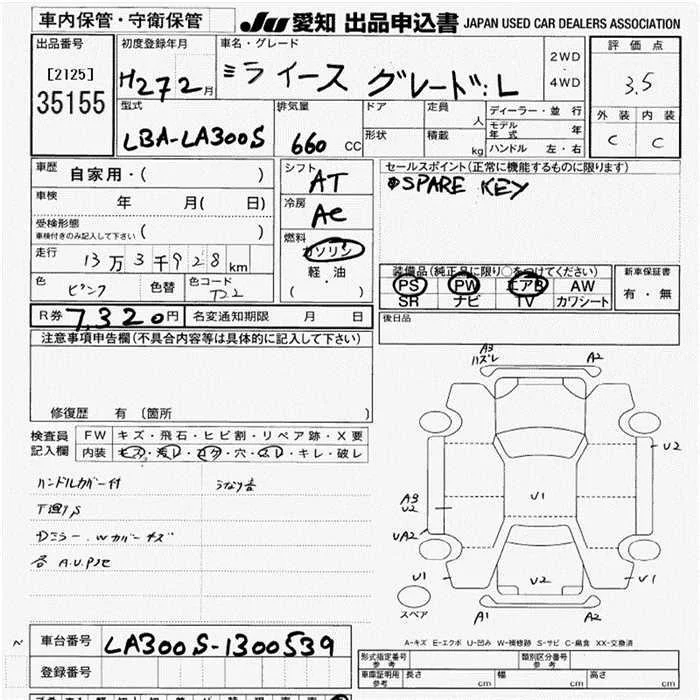 車内保管・守衛保管
JU 愛知 出品申込書 JAPAN USED CAR DEALERS ASSOCIATION
出品番号
[2125]
35155
初度登録年月
H27 2月
車名・グレード
ミライース グレード:L
2WD
・
4WD
評価点
3.5
外装 内装
C C
型式
LBA-LA300S
排気量
660 CC
ドア
定員 人
形状
積載 kg
ディーラー・並行
モデル年式 年
ハンドル 左・右
車歴 自家用・( )
車検 年 月( 日)
受検形態
車検付きのみ記入して下さい ( )
走行 13万3千928km
色 ピンク 色替 色コード
シフト
AT
冷房
AC
燃料
ガソリン
軽・油
( )
セールスポイント(正常に機能するものに限ります)
SPARE KEY
装備品(純正品に限り○をつけてください)
PS PW エアB AW
SR ナビ TV カワシート
新車保証書
有・無
R券 7,320円 名変通知期限 月 日
後日品
注意事項申告欄(不具合内容等は具体的に記入して下さい)
修復歴 有 (箇所 )
検査員
記入欄
FW キズ・飛石・ヒビ割・リペア跡・X要
内装 キズ・汚レ・コゲ・穴・スレ・キレ・破レ
ハンドルカバー付 うなり音
下廻りS
Dミラー、Wカバーキズ
各 A.U.P
A3
ハズレ
A2
U2
U1
A3
U2
UA2
U1
U2
U1
スペア
A1
A2
A-キズ E-エクボ U-凹み W-補修跡 S-サビ C-腐食 XX-交換済
車台番号 LA300S-1300539
登録番号
型式指定番号
参考
類別区分番号
参考
車庫証明用
参考
長さ cm 幅 cm 高さ cm